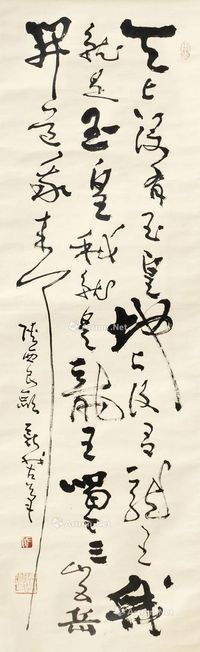 天上没有玉皇地上没有龙王我
就是玉皇我就是龙王喝令三山五岳
开道我来了
陕西民歌